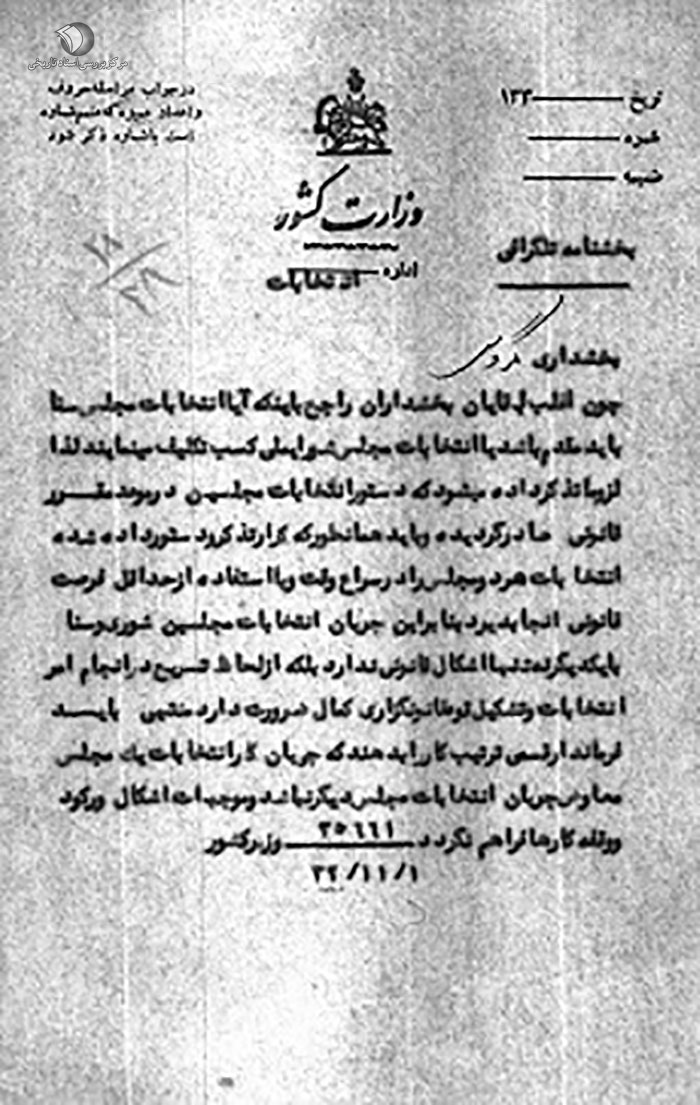 مرکز بررسی اسناد تاریخی
در جواب مراسله حروف
و اعداد میزه که منضم شماره
است با شماره ذکر شود
تاریخ ۱۳۳
شماره
ضمیمه
وزارت کشور
اداره انتخابات
بخشنامه تلگرافی
۱۸/۲۸
بخشداری گروسی
چون اغلب آقایان بخشداران راجع باینکه آیا انتخابات مجلس سنا
باید مقدم باشد یا انتخابات مجلس شورایملی کسب تکلیف مینمایند لذا
لزوما تذکر داده میشود که دستور انتخابات مجلسین در موعد مقرر
قانونی صادر گردیده و باید همانطور که کرار تذکر و دستور داده شده
انتخابات هر دو مجلس را در اسراع وقت و با استفاده از حداقل فرصت
قانونی انجا پذیرد بنابراین جریان انتخابات مجلسین شوری و سنا
بایکدیگر نه تنها اشکال قانونی ندارد بلکه از لحاظ تسریع در انجام امر
انتخابات و تشکیل قانونگزاری کمال ضرورت دارد منتهی بایسد
فرماندار قسمی ترتیب کار را بدهند که جریان کار انتخابات یک مجلس
معارض جریان انتخابات مجلس دیگر نباشد و موجبات اشکال و رکود
و وقفه کارها فراهم نگردد ۳۵۶۶۱ وزیر کشور
۳۲/۱۱/۱